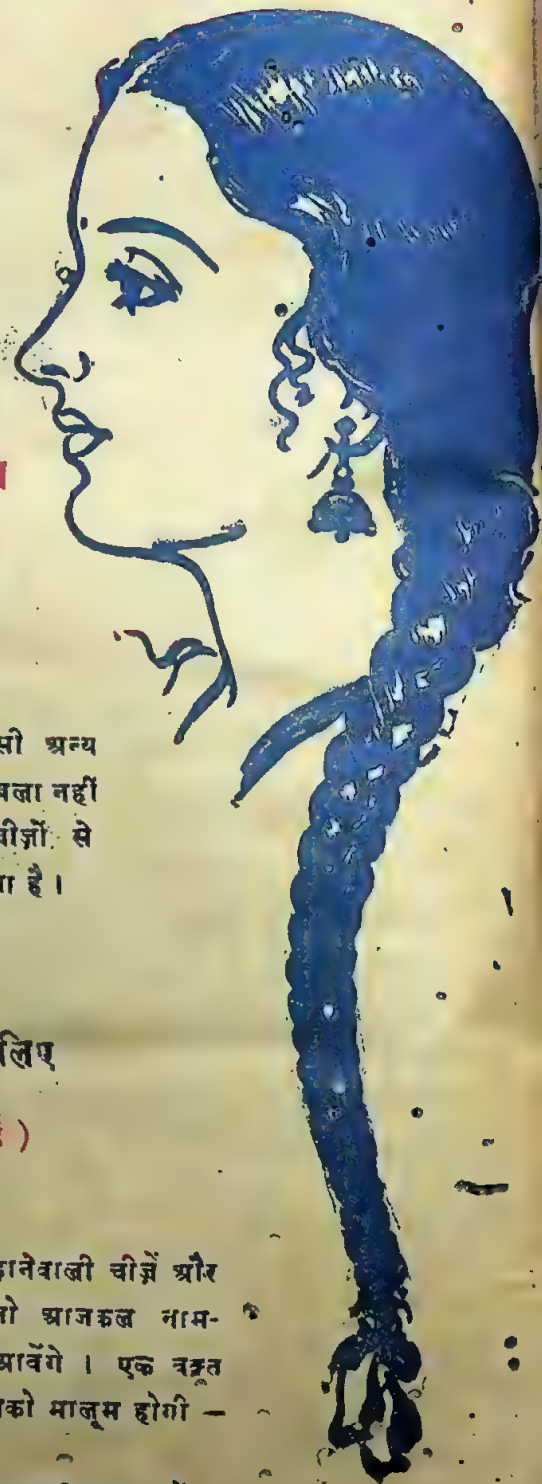 सी अन्य
बला नहीं
चीज़ों से
ा है।
लिए
)
ानेवाली चीज़ें और
तो आजकल नाम-
आवेंगे । एक वक़्त
पको मालूम होगी —